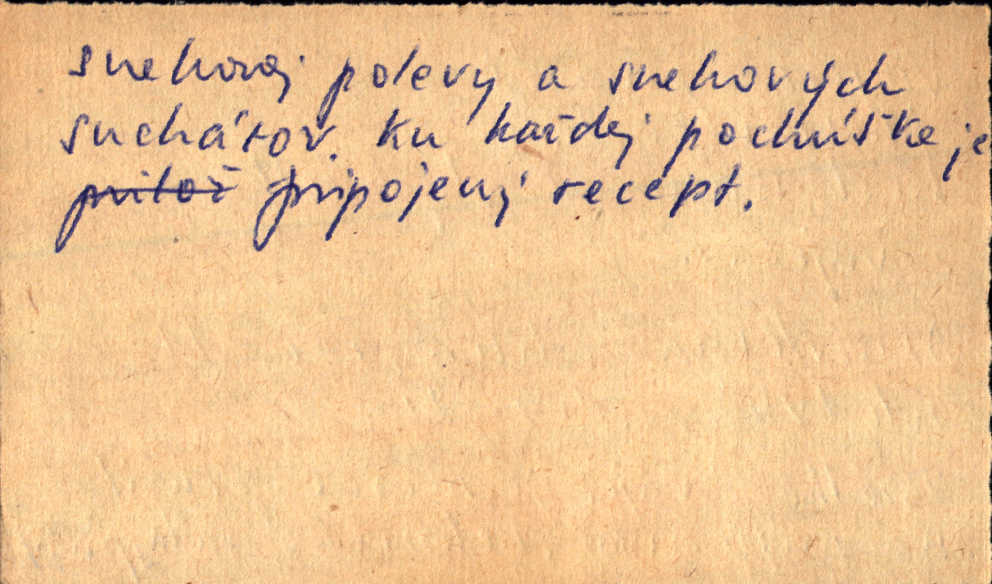 snehovej polevy a snehových
suchárov. Ku každej pochúťke je
prilož pripojený recept.